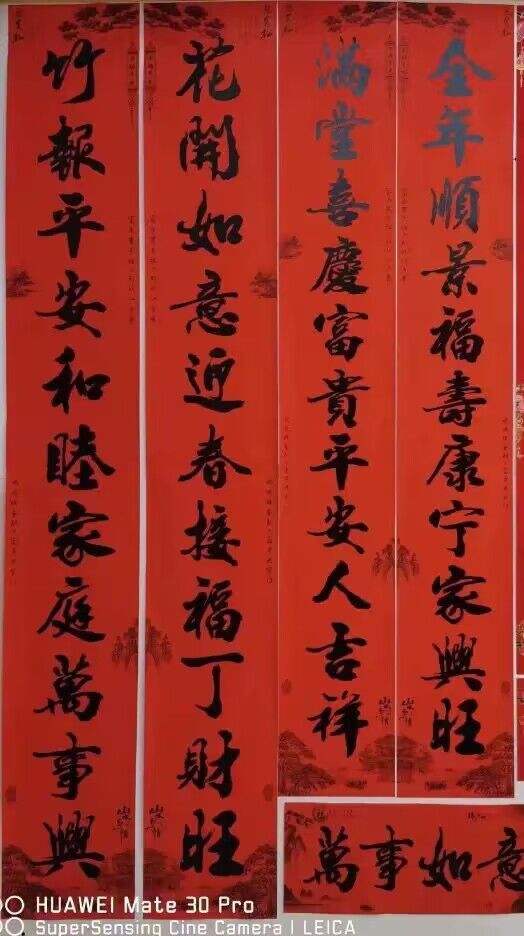 全年順景福壽康宁家興旺
滿堂喜慶富貴平安人吉祥
花開如意迎春接福丁財旺
竹報平安和睦家庭萬事興
萬事如意
HUAWEI Mate 30 Pro
SuperSensing Cine Camera | LEICA